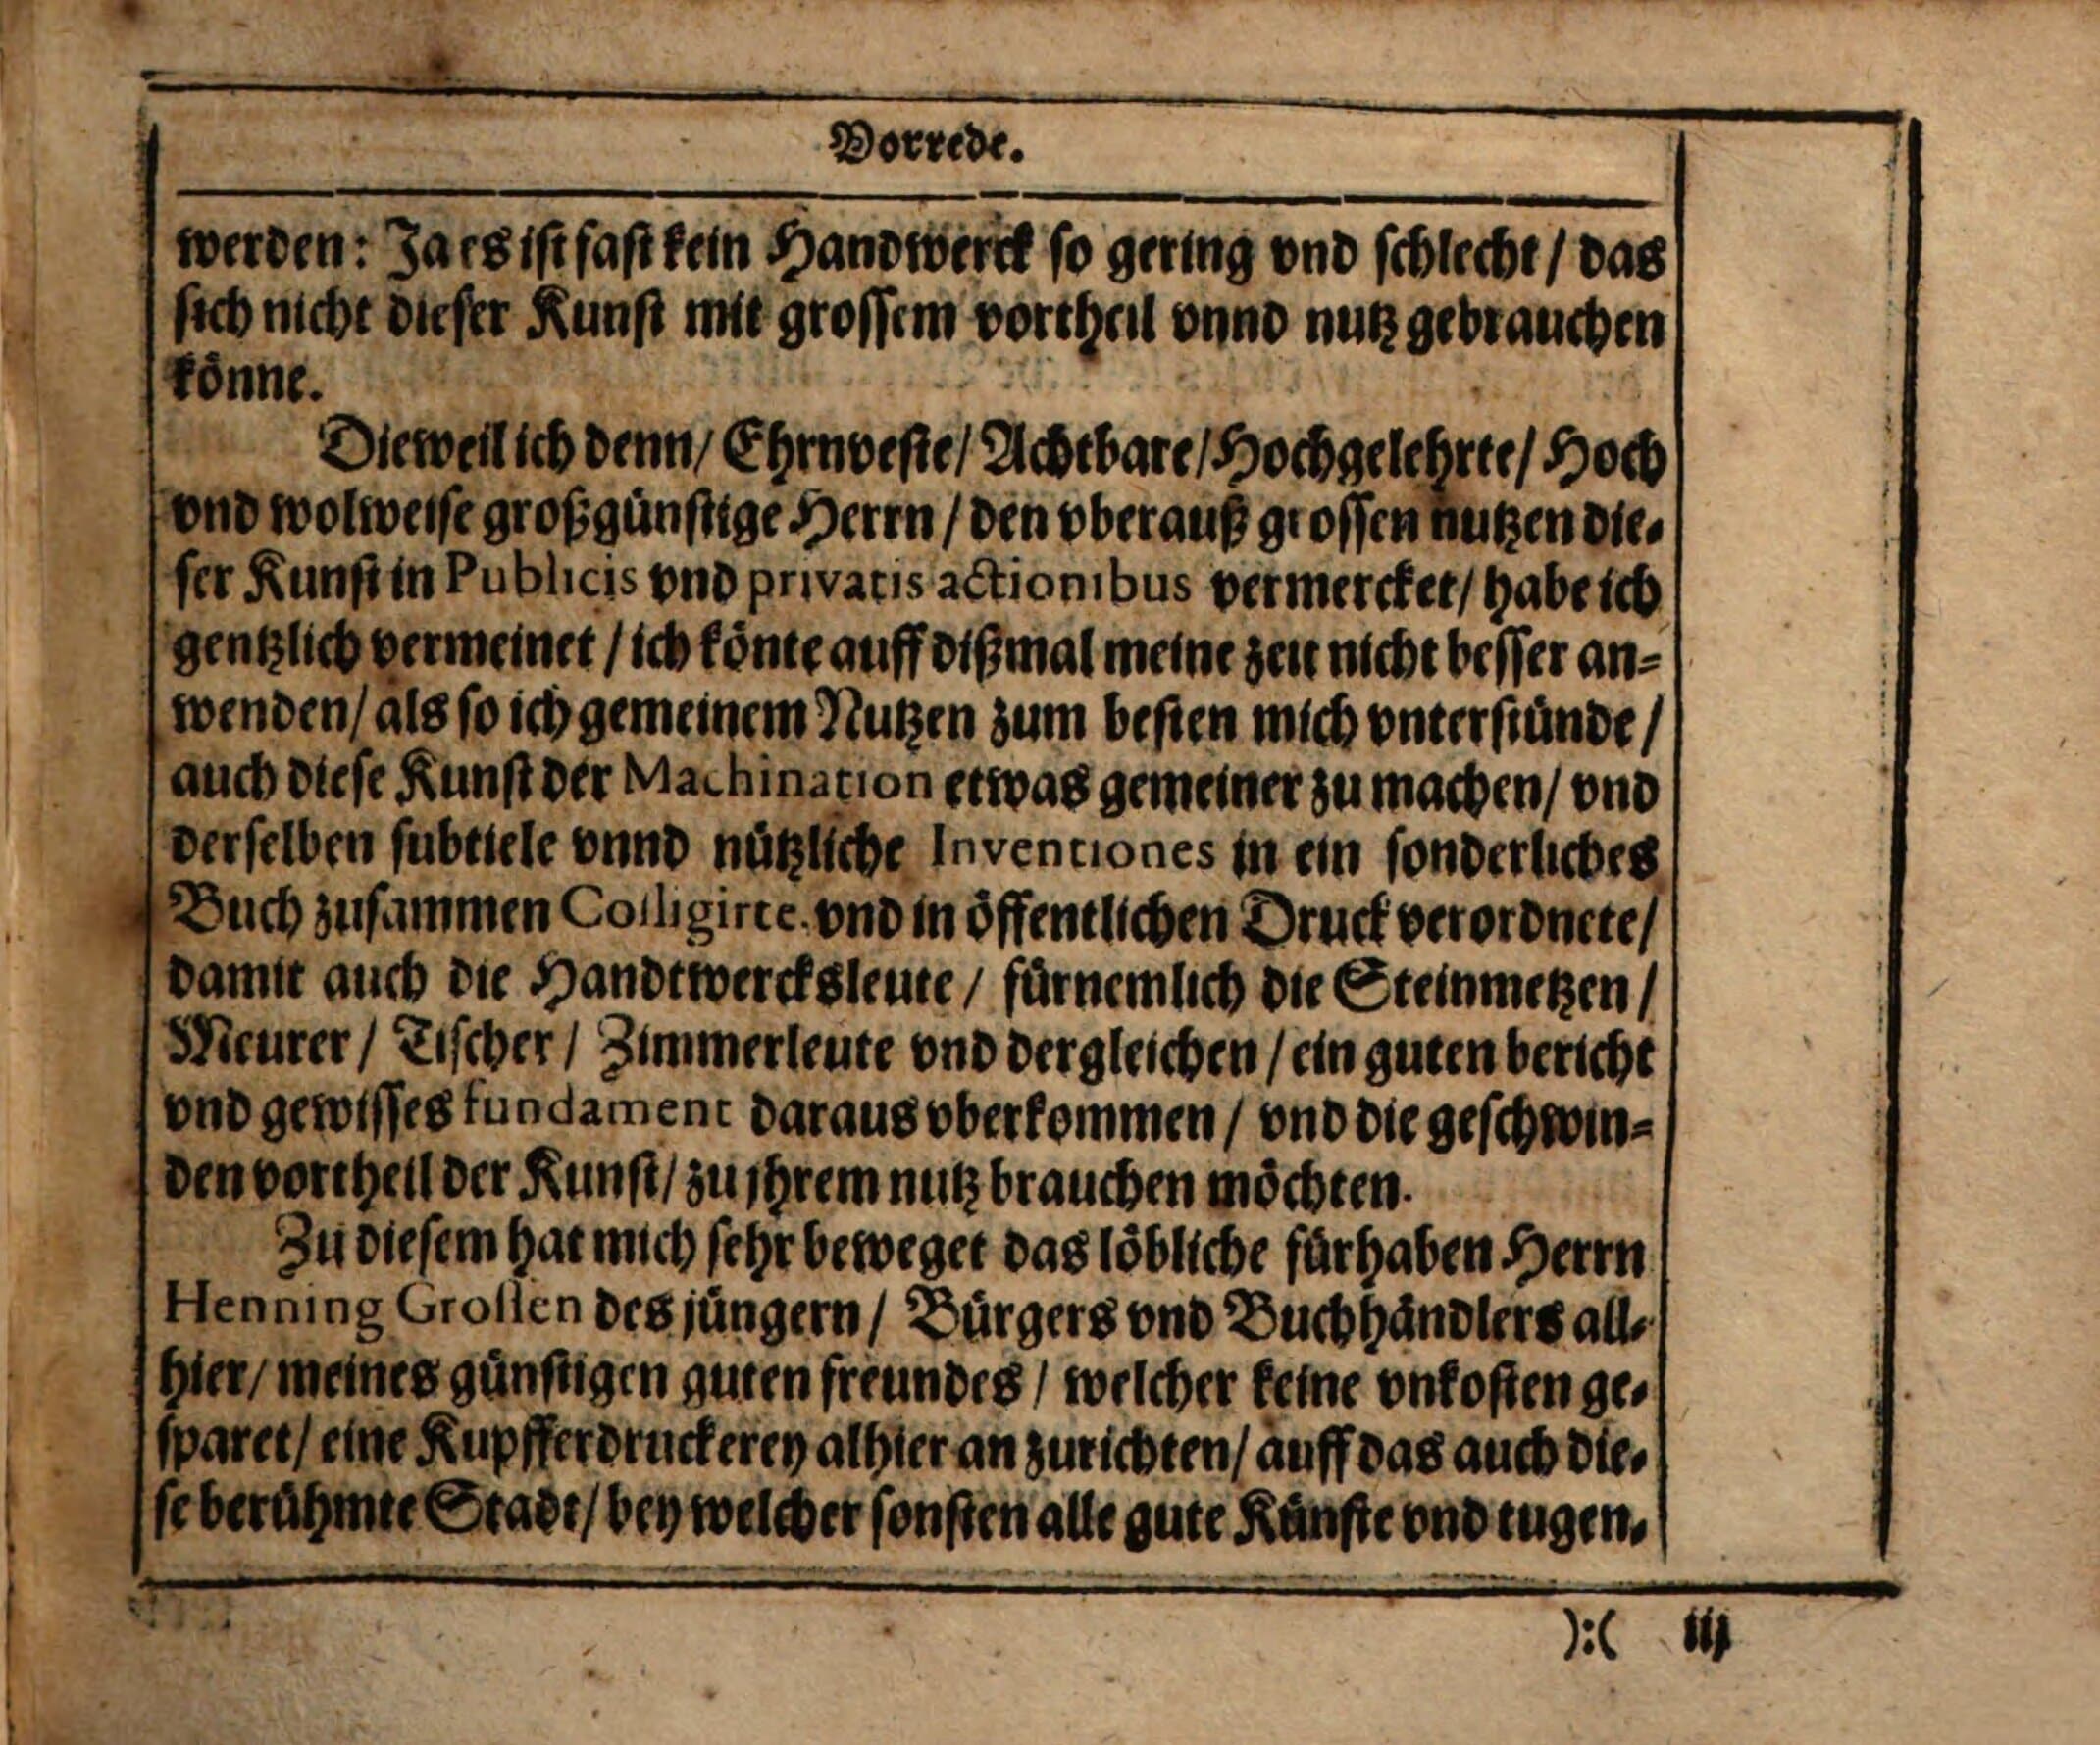 Vorrede.
werden: Ja es ist fast kein Handwerck so gering vnd schlecht / das
sich nicht dieser Kunst mit grossem vortheil vnnd nutz gebrauchen
könne.
Dieweil ich denn / Ehrnveste / Achtbare / Hochgelehrte / Hoch
vnd wolweise großgünstige Herrn / den vberauß grossen nutzen die-
ser Kunst in Publicis vnd privatis actionibus vermercket / habe ich
gentzlich vermeinet / ich könte auff dißmal meine zeit nicht besser an-
wenden / als so ich gemeinem Nutzen zum besten mich vnterstünde /
auch diese Kunst der Machination etwas gemeiner zu machen / vnd
derselben subtiele vnnd nützliche Inventiones in ein sonderliches
Buch zusammen Colligirte, vnd in öffentlichen Druck verordnete /
damit auch die Handtwercksleute / fürnemlich die Steinmetzen /
Meurer / Tischer / Zimmerleute vnd dergleichen / ein guten bericht
vnd gewisses fundament daraus vberkommen / vnd die geschwin-
den vortheil der Kunst / zu jhrem nutz brauchen möchten.
Zu diesem hat mich sehr beweget das löbliche fürhaben Herrn
Henning Grossen des jüngern / Bürgers vnd Buchhändlers all-
hier / meines günstigen guten freundes / welcher keine vnkosten ge-
sparet / eine Kupfferdruckerey alhier an zurichten / auff das auch die-
se berühmte Stadt / bey welcher sonsten alle gute Künste vnd tugen-
):( iij